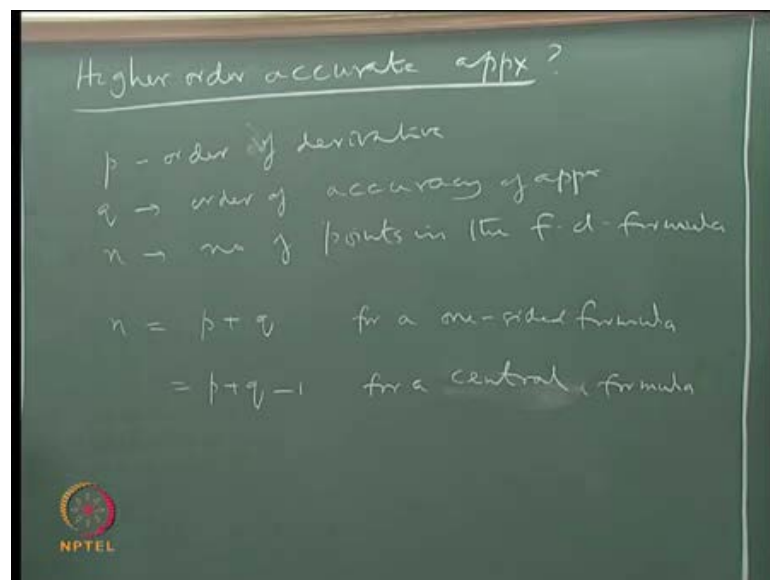 Higher order accurate appx?
p - order of derivative
q → order of accuracy of appx
n → no of points in the f-d-formula
n = p + q for a one-sided formula
= p + q - 1 for a central formula
NPTEL